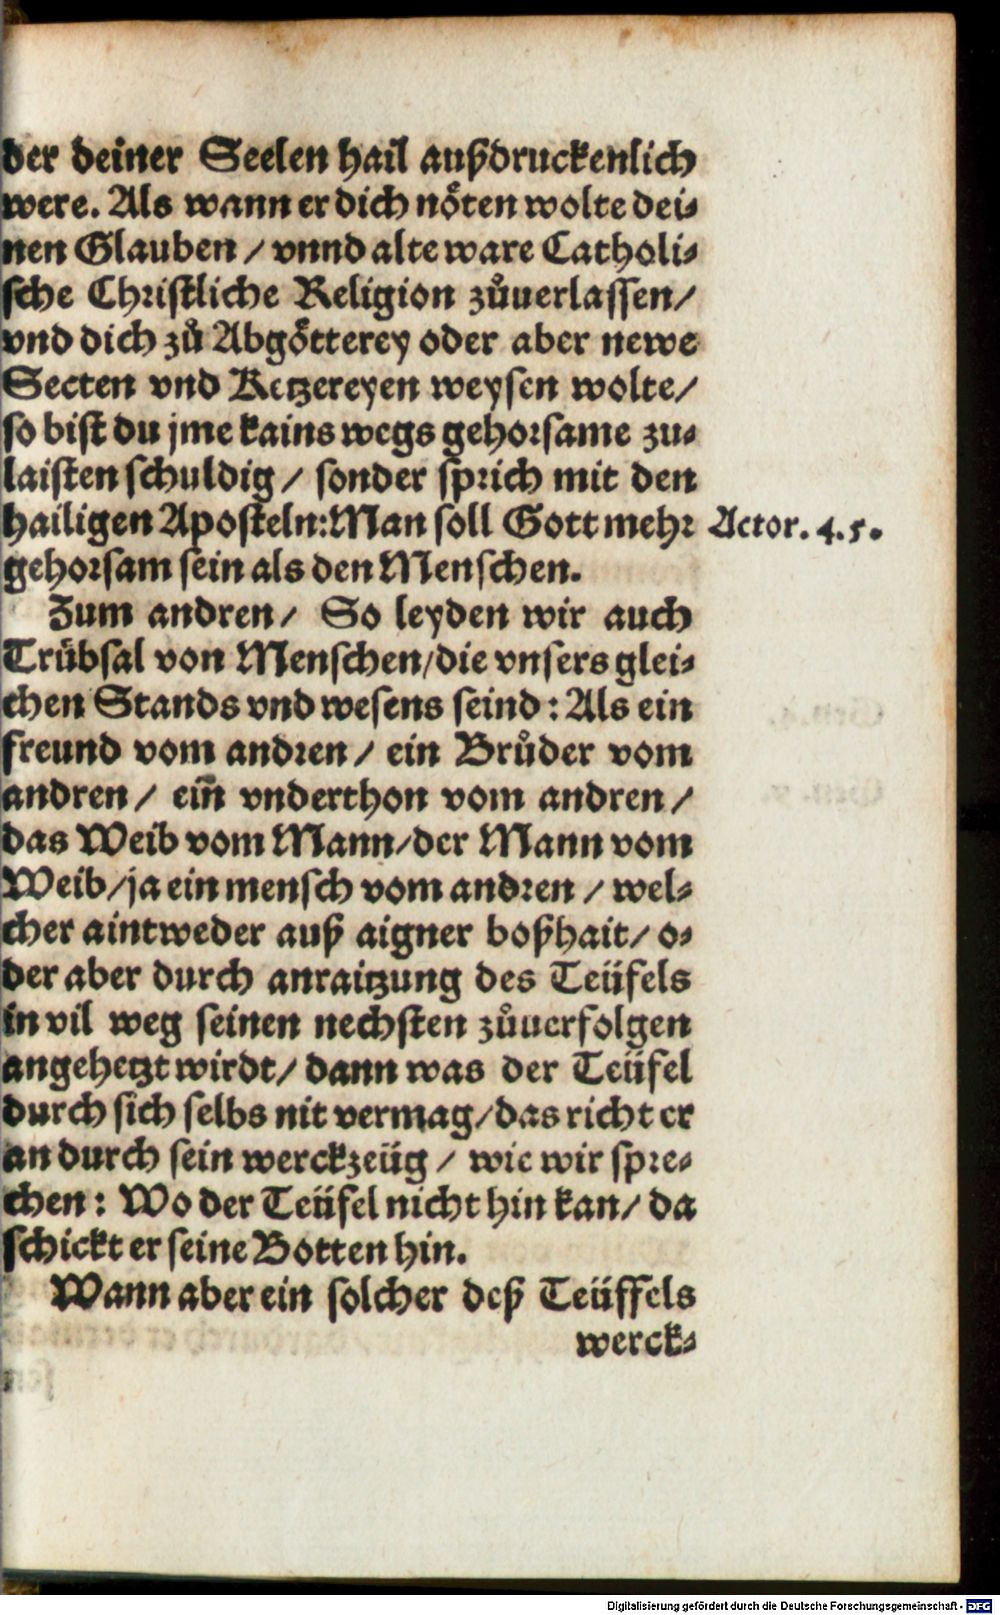 der deiner Seelen hail außdruckenlich
were. Als wann er dich nöten wolte dei-
nen Glauben / vnnd alte ware Catholi-
sche Christliche Religion zůuerlassen/
vnd dich zů Abgötterey oder aber newe
Secten vnd Ketzereyen weysen wolte/
so bist du jme kains wegs gehorsame zu-
laisten schuldig / sonder sprich mit den
hailigen Aposteln: Man soll Gott mehr
Actor. 4. 5.
gehorsam sein als den Menschen.
Zum andren / So leyden wir auch
Trübsal von Menschen/die vnsers glei-
chen Stands vnd wesens seind: Als ein
freund vom andren / ein Brůder vom
andren / ein̄ vnderthon vom andren /
das Weib vom Mann/der Mann vom
Weib/ja ein mensch vom andren / wel-
cher aintweder auß aigner boßhait/ o-
der aber durch anraitzung des Teüfels
in vil weg seinen nechsten zůuerfolgen
angehetzt wirdt/ dann was der Teüfel
durch sich selbs nit vermag/das richt er
an durch sein werckzeüg / wie wir spre-
chen: Wo der Teüfel nicht hin kan/ da
schickt er seine Botten hin.
Wann aber ein solcher deß Teüffels
werck-
Digitalisierung gefördert durch die Deutsche Forschungsgemeinschaft - DFG